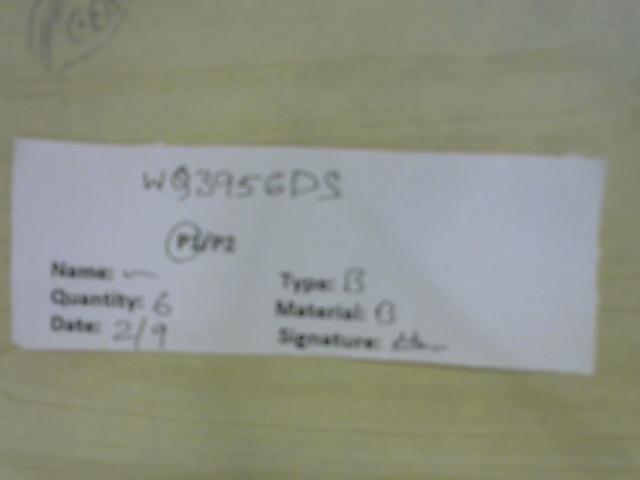 WQ3956DS
P1/P2
Name: ~
Quantity: 6
Date: 2/9
Type: B
Material: B
Signature: